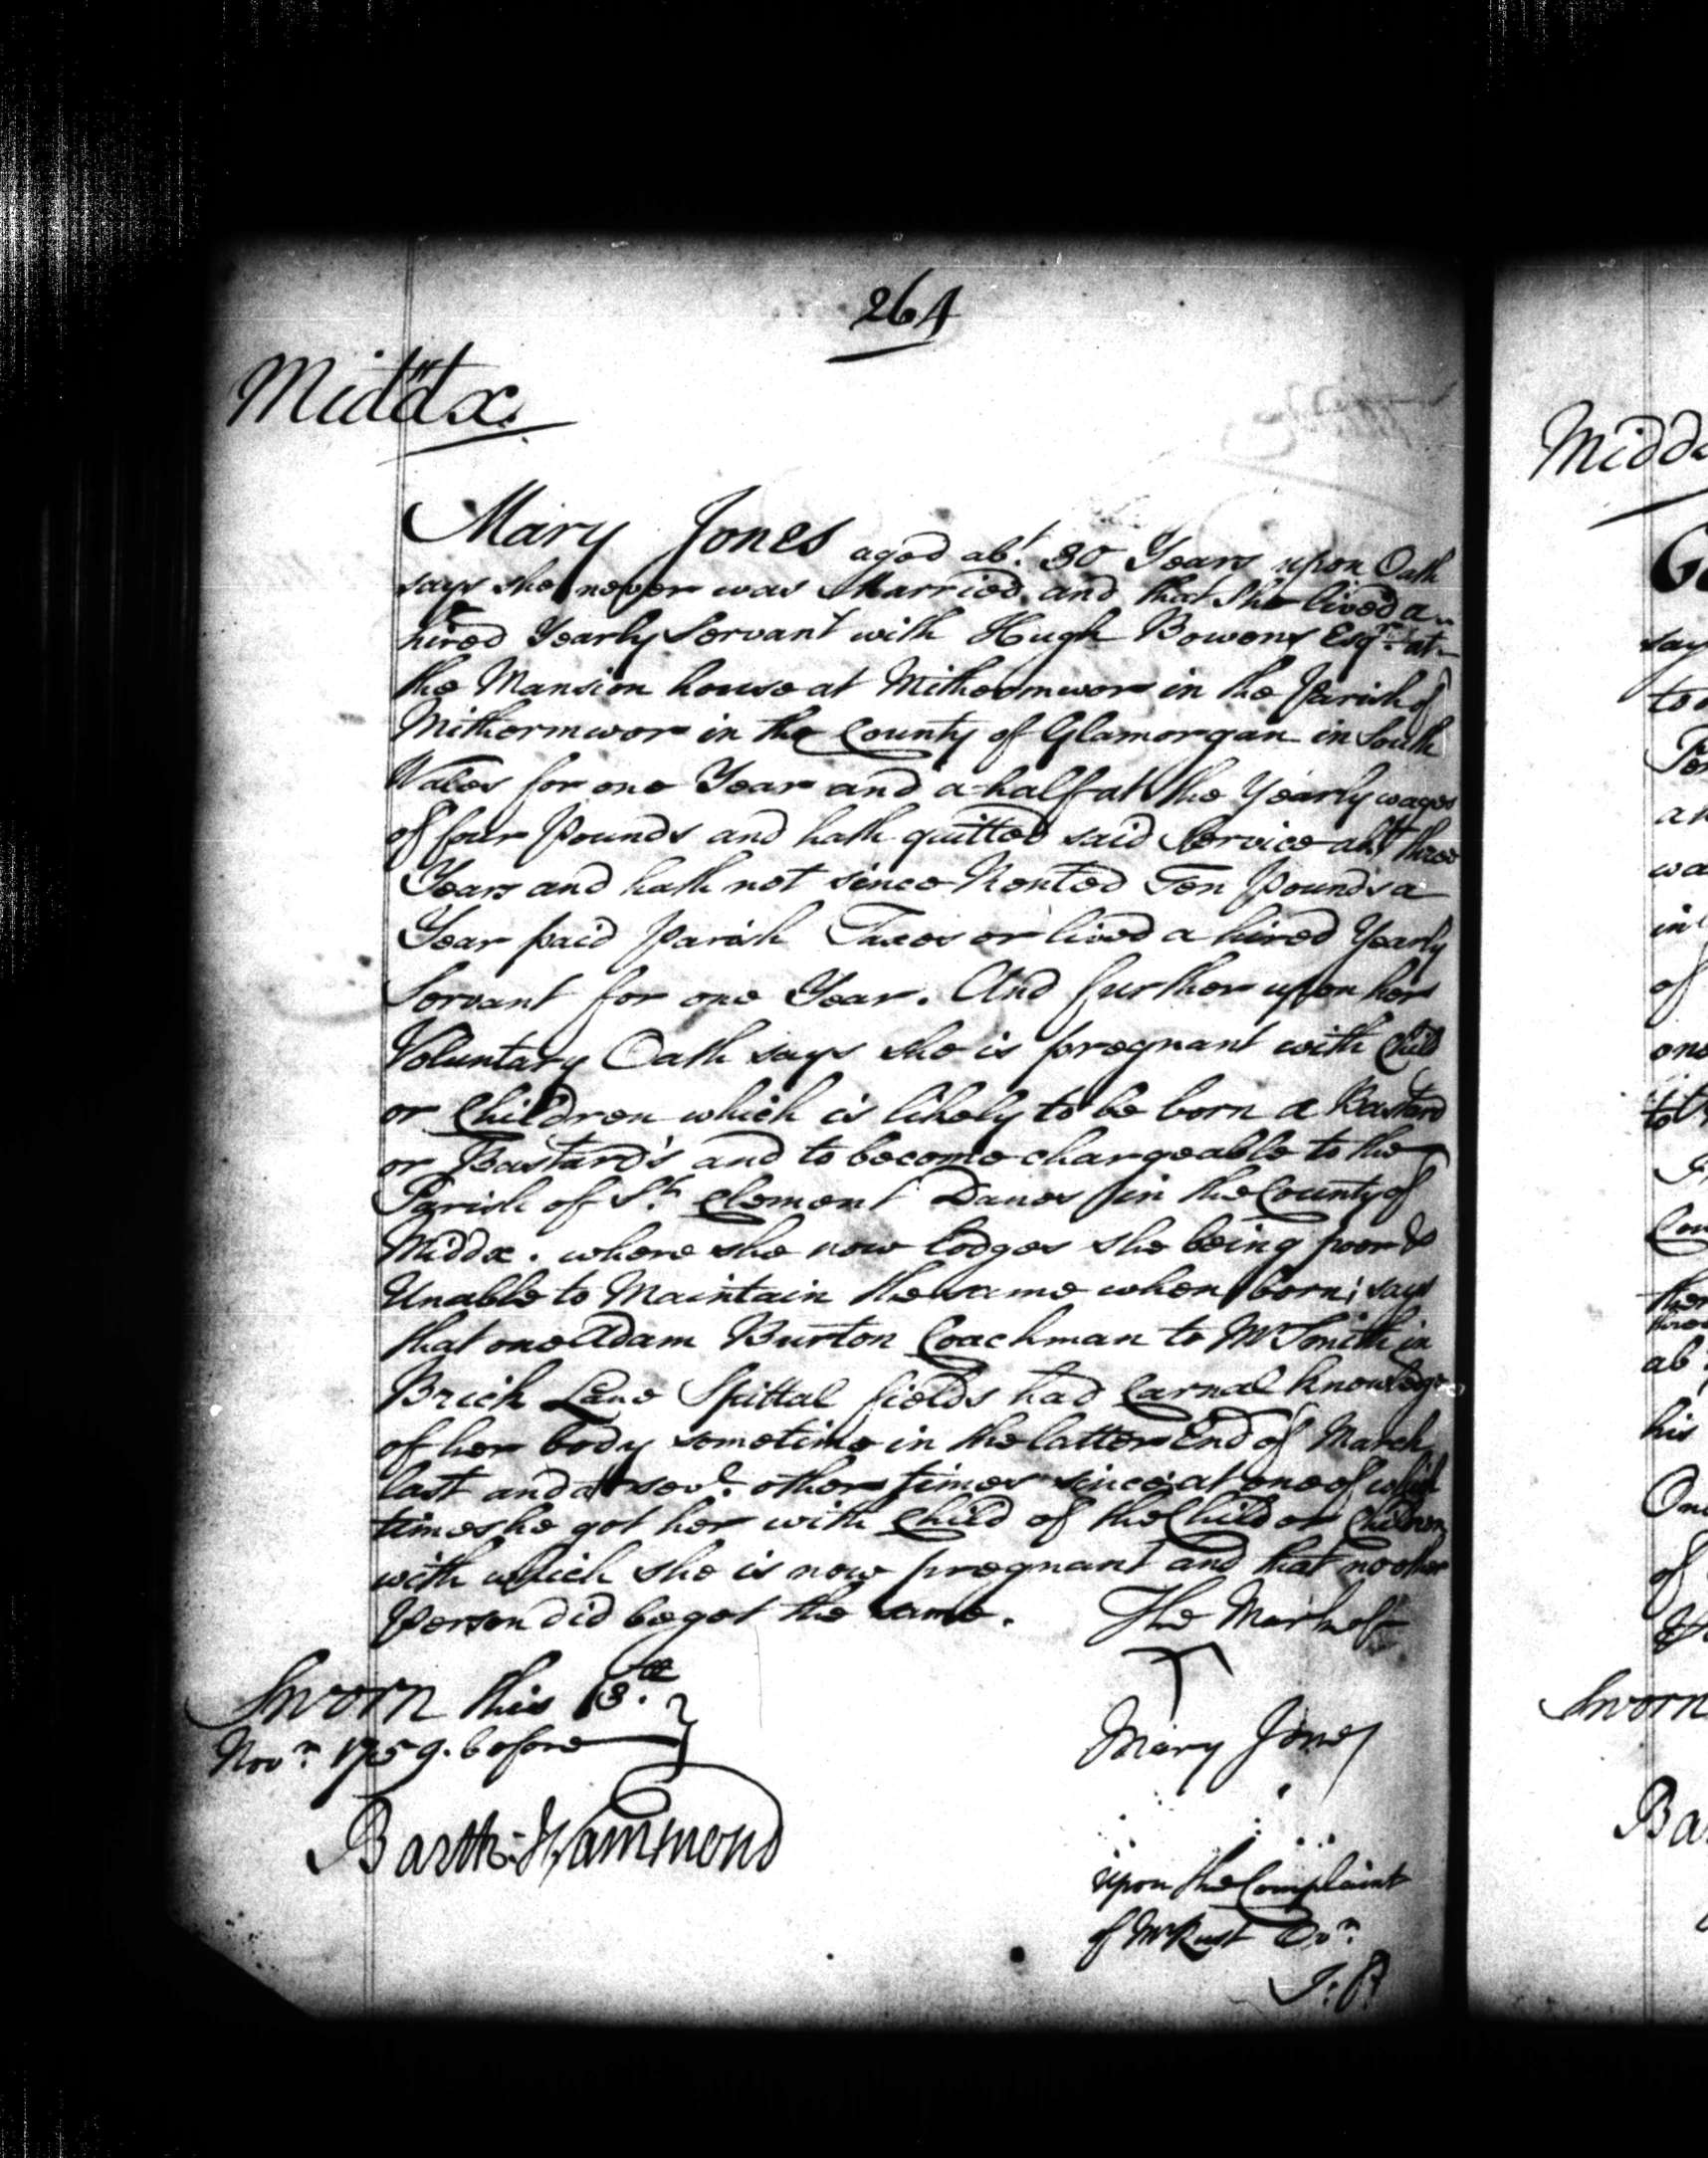 264
Midd:x
Mary Jones aged abt. 30 Years upon Oath
says she never was Married, and that She lived a
hired Yearly Servant with Hugh Bowens Esqr. at
the Mansion house at Mithermwor in the Parish of
Mithermwor in the County of Glamorgan in South
Wales for one Year and a half at the Yearly wages
of four Pounds and hath quitted said Service abt. three
Years and hath not since Rented Ten Pounds a
Year paid Parish Taxes or lived a hired Yearly
Servant for one Year. And further upon her
Voluntary Oath says she is pregnant with Child
or Children which is likely to be born a Bastard
or Bastard's and to become chargeable to the
Parish of St. Clement Danes in the County of
Middx. where she now lodges she being poor &
Unable to Maintain the same when born; says
that one Adam Burton Coachman to Mr Smith in
Brick Lane Spittal fields had Carnal knowledge
of her body sometime in the latter End of March
last and at sevl. other times since at one of which
times he got her with Child of the Child or Children
with which she is now pregnant and that no other
Person did beget the same. The Mark of
Sworn this 13.th
Novr. 1759. before
Mary Jones
Barth: Hammond
upon the Complaint
of Mr Rust Ovr.
J: P:
Midd
say
to
a
wa
in
of
one
to
ab
his
On
of
Sworn
Ba